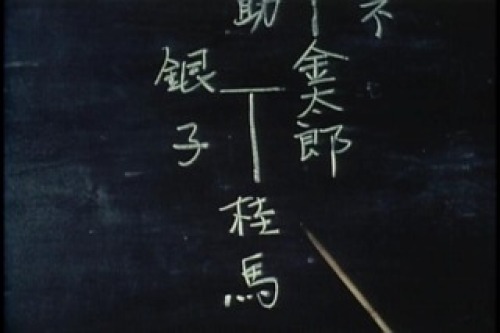 助
金太郎
銀子
桂馬